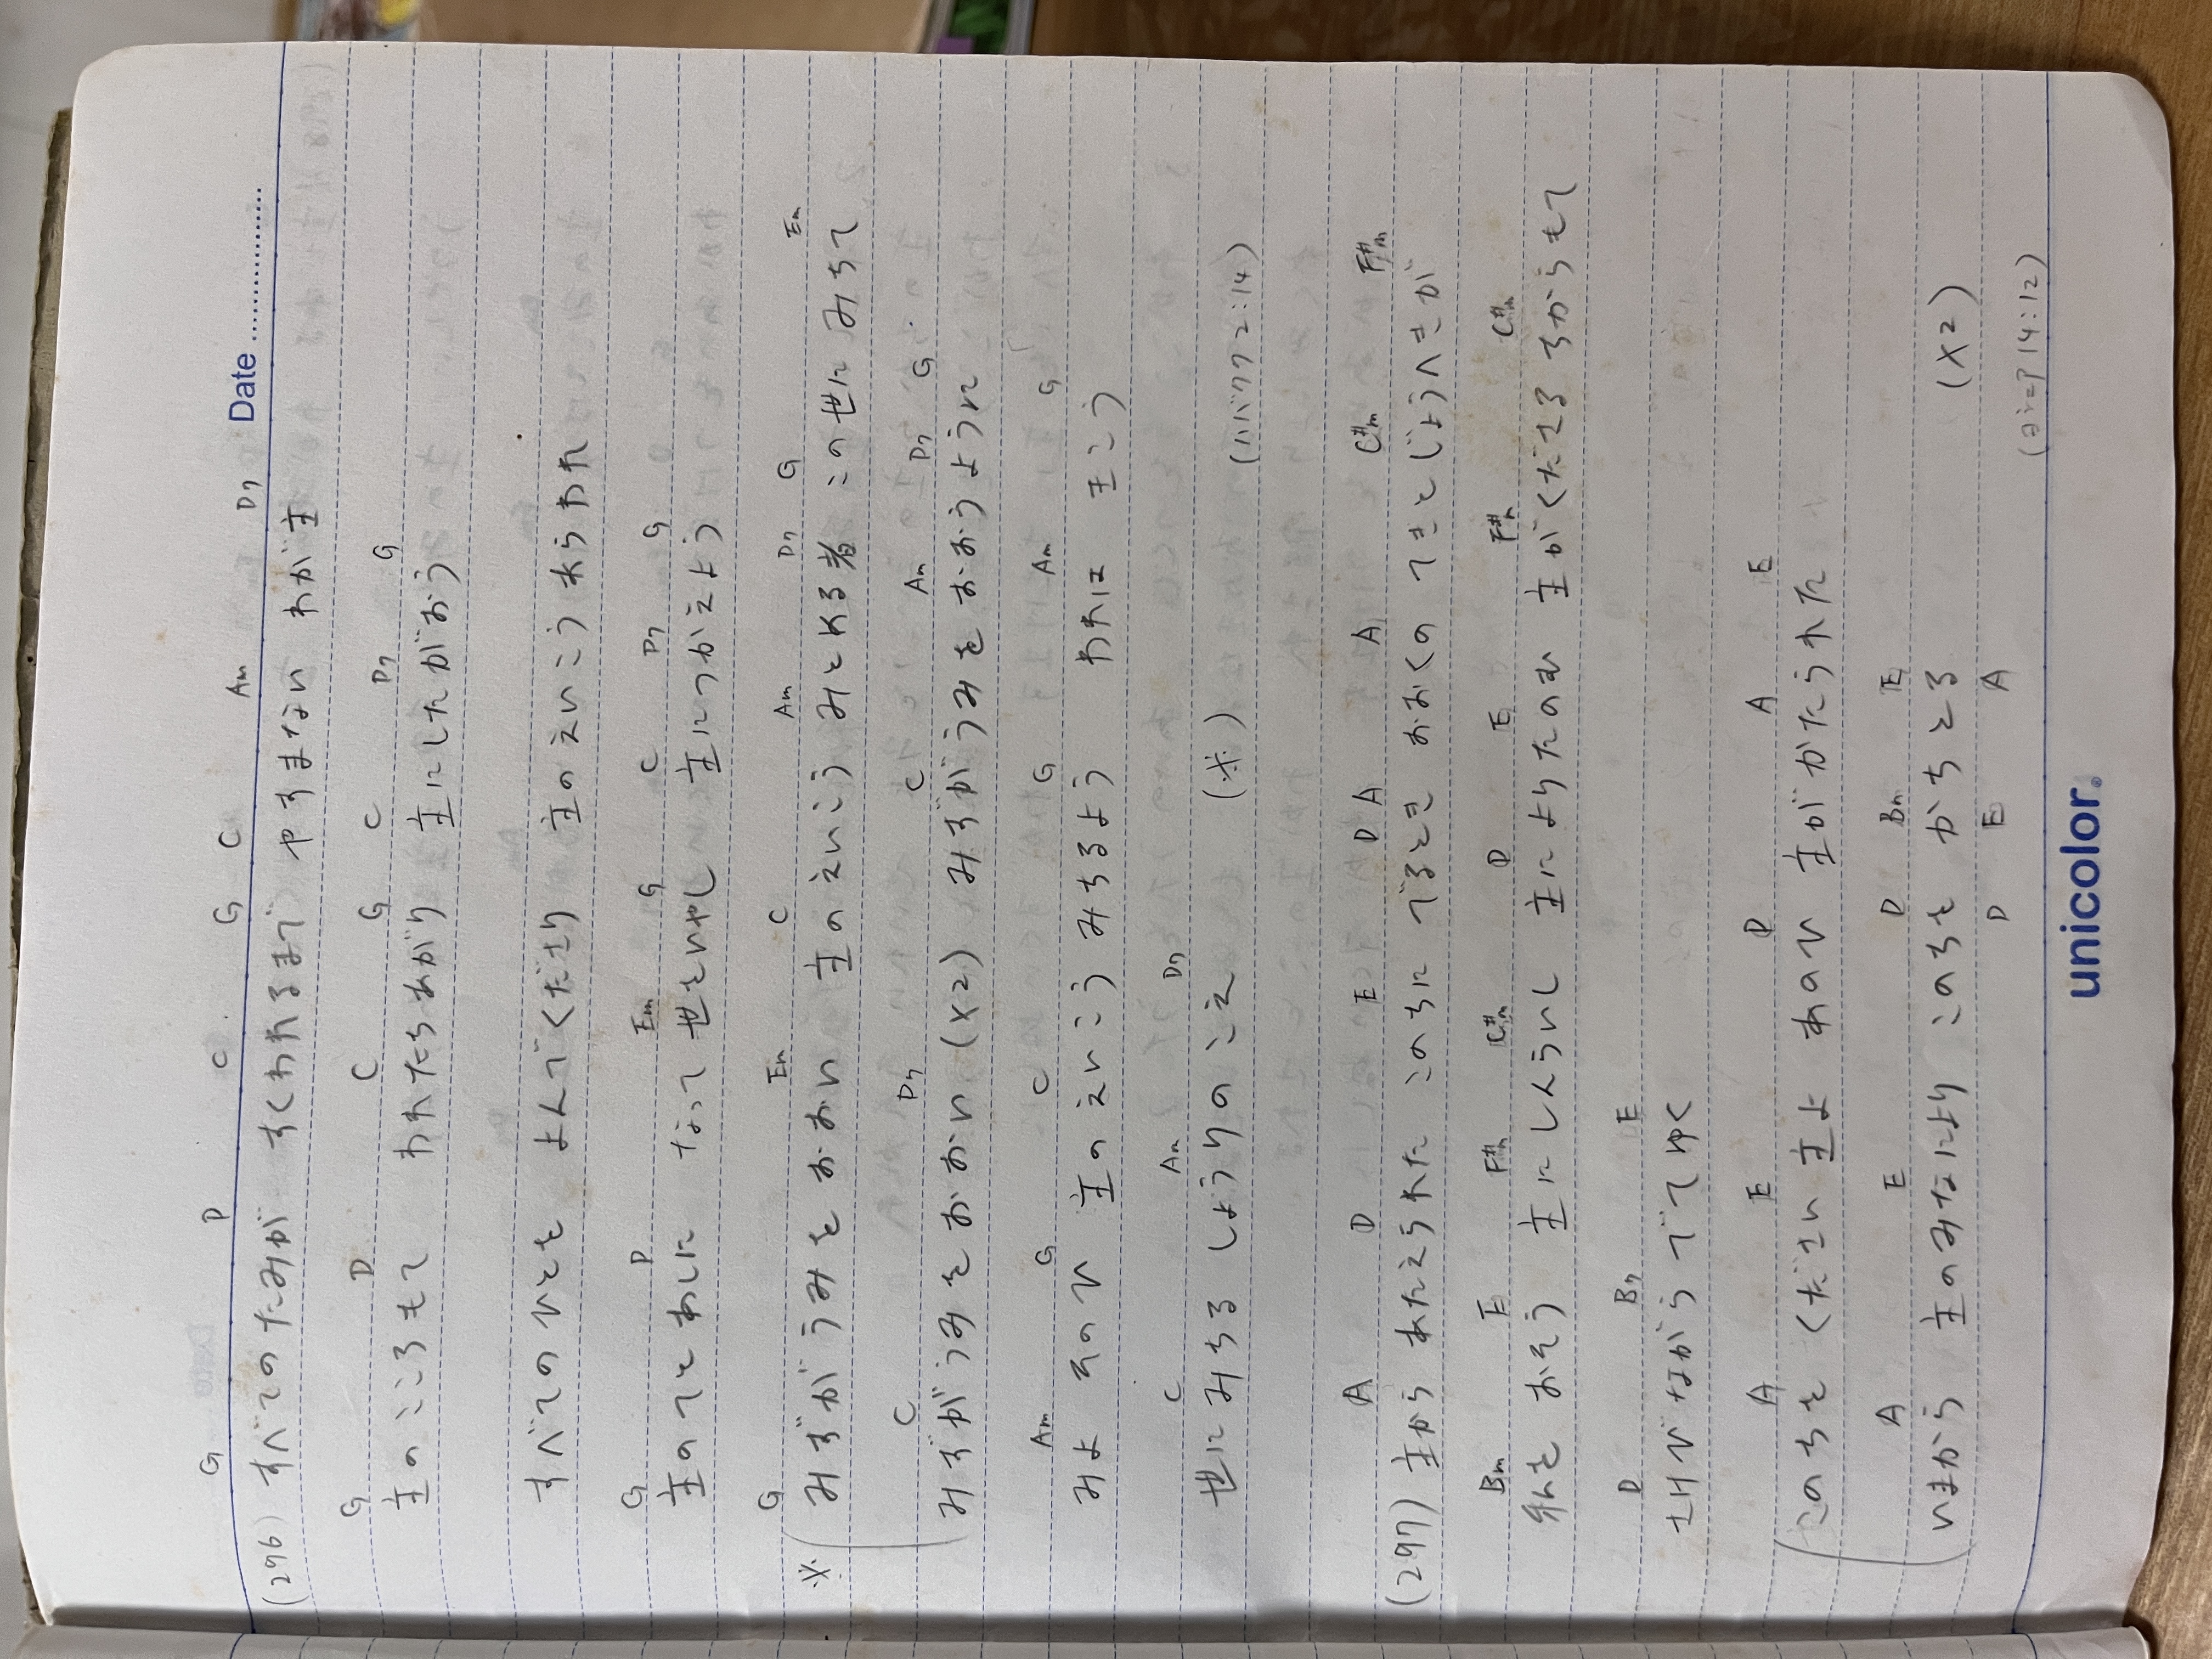 Date
G D C G C Am D7
(296) すべてのたみが すくわれるまで やすまない わが主
G D C G C D7 G
主のこころもて われたちあがり 主にしたがおう
すべてのひとを よんでくださり 主のえいこうあらわれ
G D Em G C D7 G
主のてとあしに なって 世をいやし 主につかえよう
G Em C Am D7 G Em
※ みずがうみを おおい 主のえいこう みとめる者 この世に みちて
C D7 C Am D7 G
みずがうみを おおい (×2) みずがうみを おおうように
Am G C G Am G
みよ そのひ 主のえいこう みちるよう われは きこう
C Am D7
世に みちる しょうりの こえ (※) (ハバクク2:14)
A D E D A A C#m F#m
(297) 主から あたえられた このちに でるとき おおくの てきと じょうへきが
Bm E F#m C#m D E F#m C#m
兵を おそう 主に しんらいし 主に よりたのむ 主が くださる ちからもて
D B7 E
さけびながら でてゆく
A E D A E
このちを ください 主よ あのひ 主が かたられた
A E D Bm E
いまから 主の みなにより このちを かちとる (×2)
D E A
(ヨシュア14:12)
unicolor.